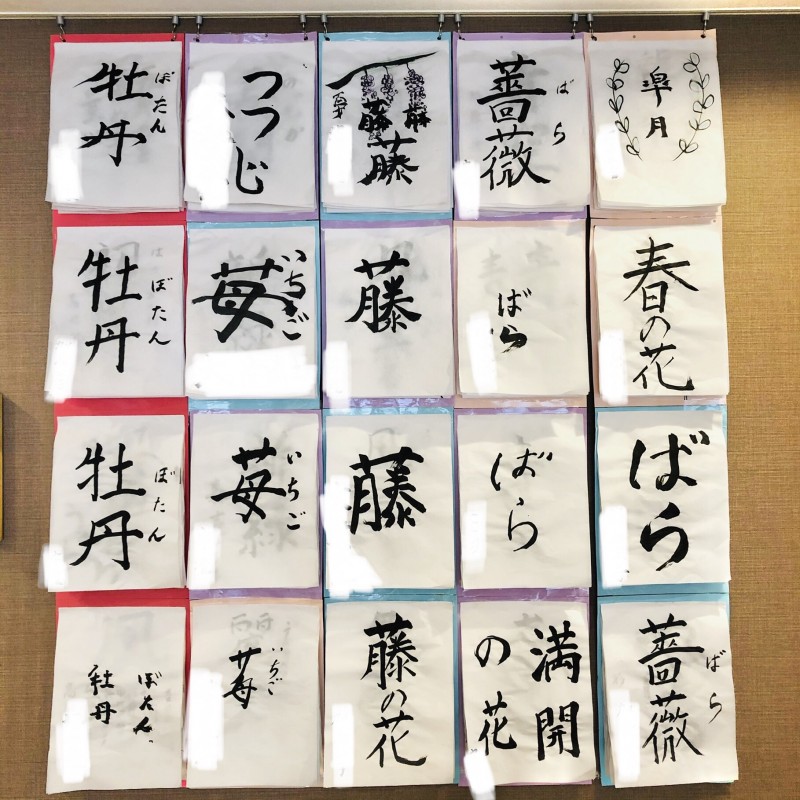 牡丹
ぼたん
つつじ
藤
藤
藤
百才
薔薇
ばら
皐月
牡丹
ぼたん
苺
いちご
藤
ばら
春の花
牡丹
ぼたん
苺
いちご
藤
ばら
ばら
牡丹
ぼたん
苺
いちご
藤の花
満開
の花
薔薇
ばら